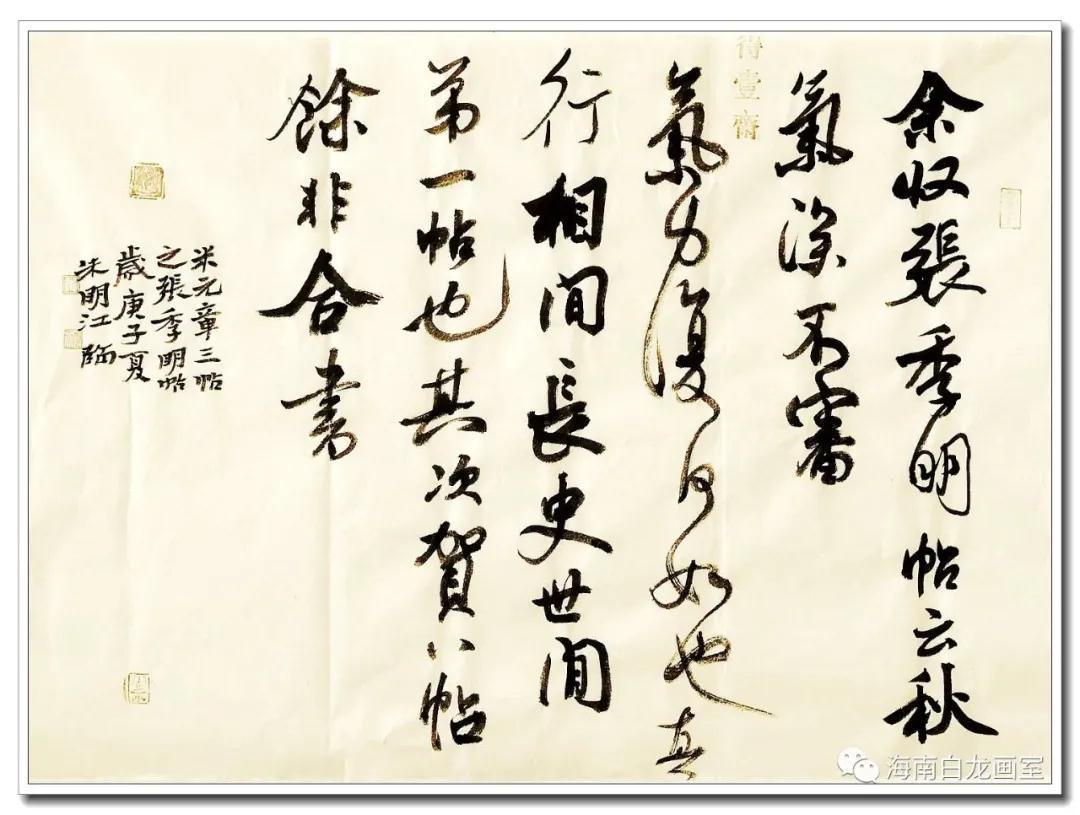 余收張季明帖云秋
氣深不審
氣力復何如也真
行相間長史世間
第一帖也其次賀八帖
餘非合書
米元章三帖
之張季明帖
歲庚子夏
朱明江臨
得壹齋
海南白龙画室